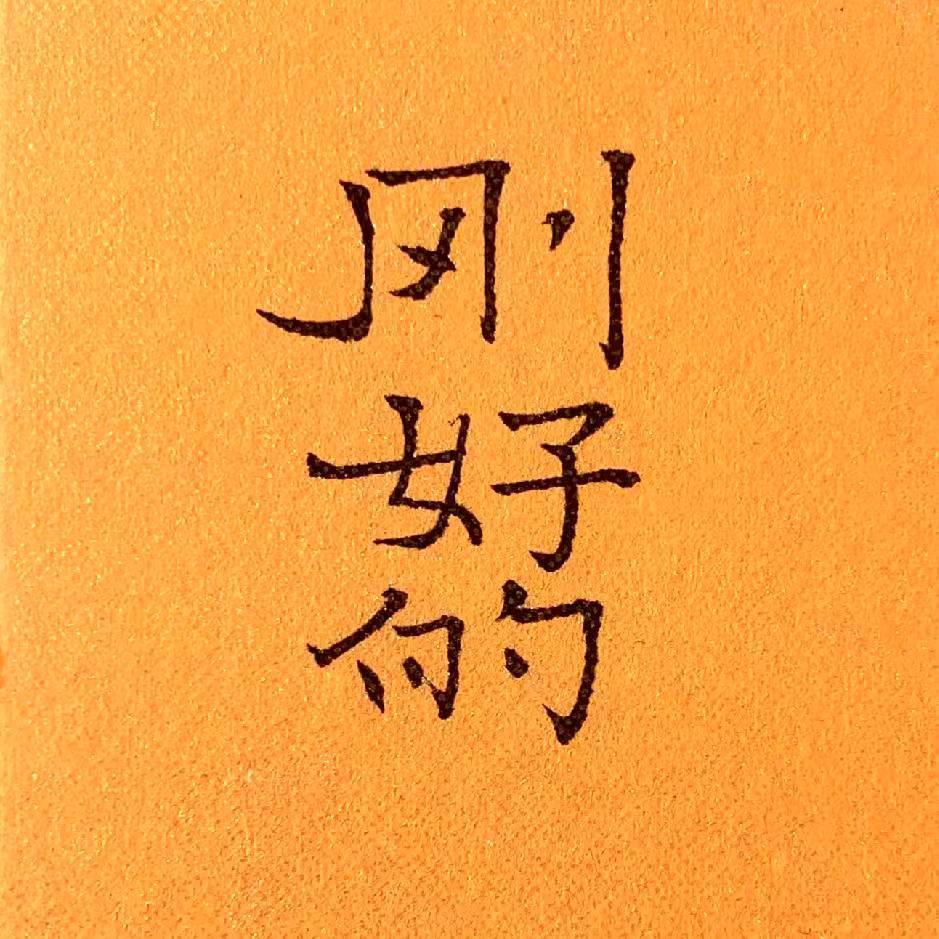 刚
好
的